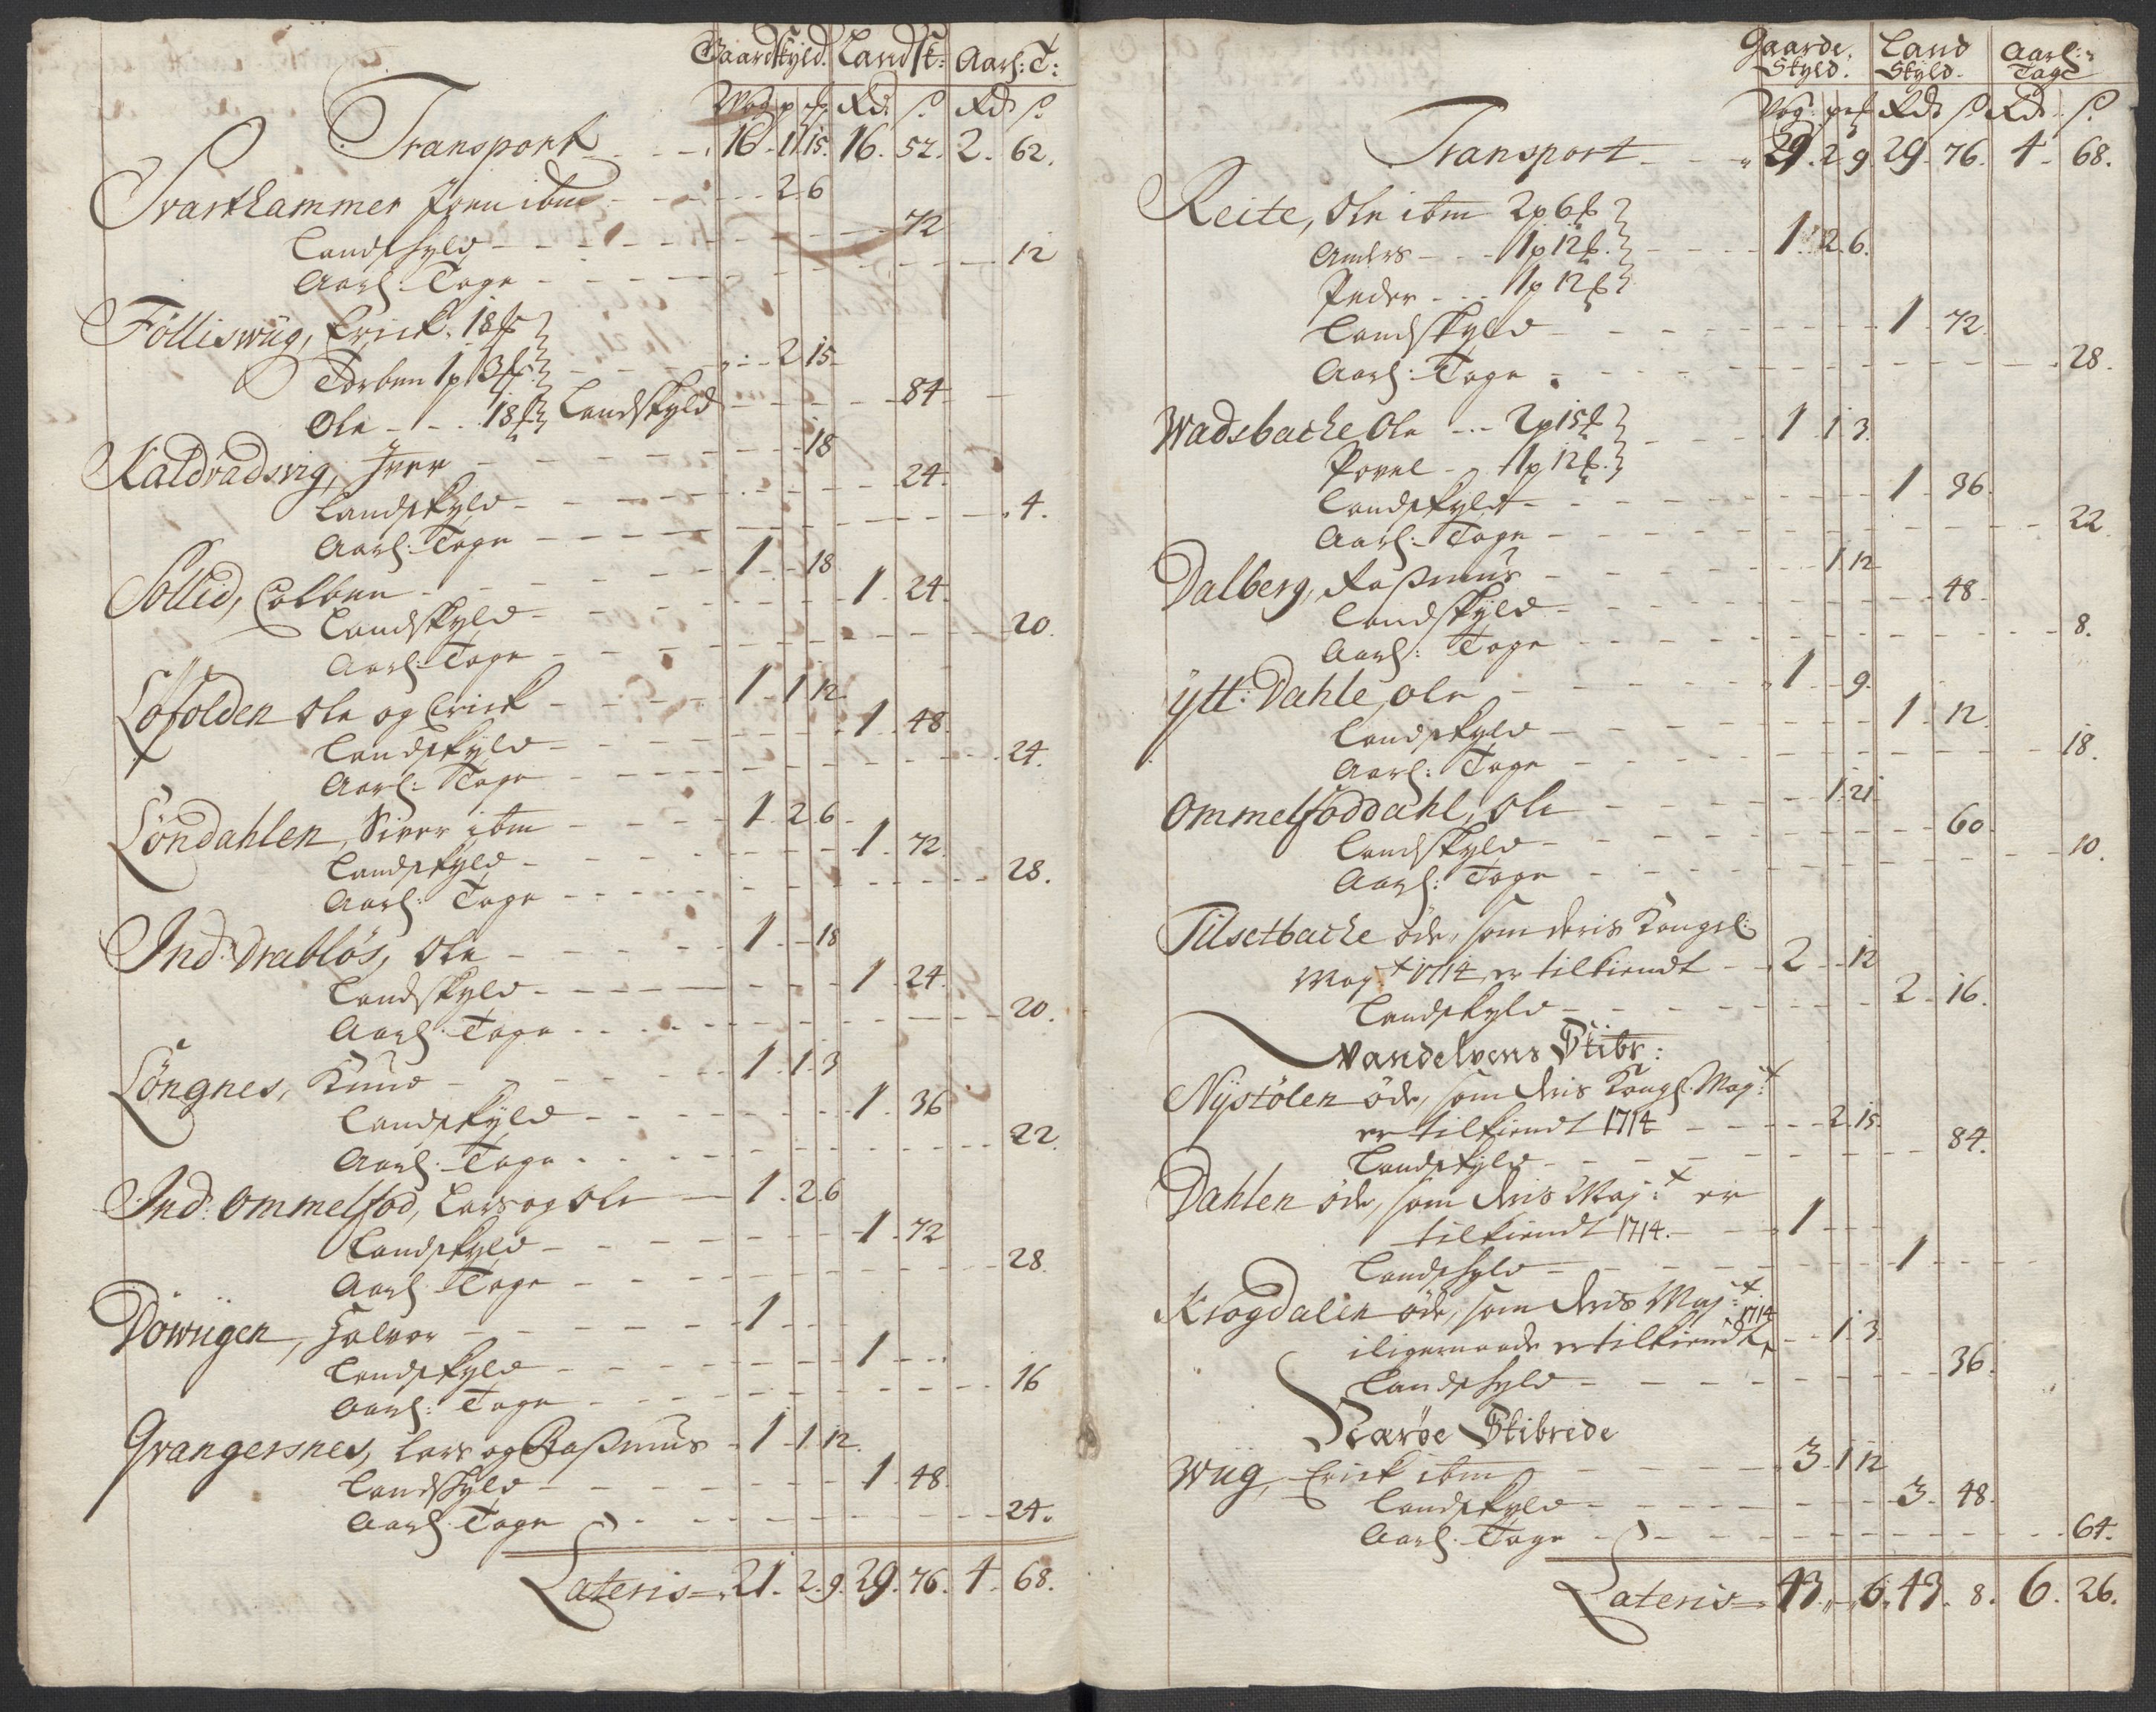 Gaardskyld. Landsk: Aarl: T:
Wog p ℔ Rd. ß Rd ß
Transport 16 1 15. 16. 52. 2. 62.
Svarthammer Joen ibm 2 6
Landskyld 72
Aarl: Tage 12
Fölliswüg, Erick. 18℔
Torben 1p 3℔ 2 15
Ole 18℔ Landskyld 84
Kaldvadsvig, Iver 18
Landskyld 24.
Aarl: Tage 4.
Sollid, Colben 1 18
Landskyld 1 24
Aarl: Tage 20.
Löfolden Ole og Erick 1 1 12
Landskyld 1 48
Aarl: Tage 24.
Löndahlen, Siver ibm 1. 2 6
Landskyld 1. 72
Aarl: Tage 28.
Ind: Drablös, Ole 1. 18
Landskyld 1 24.
Aarl: Tage 20.
Löngnes, Knud 1. 1. 3
Landskyld 1. 36
Aarl: Tage 22.
Ind: Ommelfod, Lars og Ole 1. 2 6
Landskyld 1. 72
Aarl: Tage 28.
Döwügen, Halvor 1
Landskyld 1
Aarl: Tage 16
Grangersnes, Lars og Rasmus 1 1 12.
Landskyld 1. 48
Aarl: Tage 24.
Lateris 21. 2. 9. 29. 76. 4. 68.
Gaarde Skyld. Land Skyld. Aarl: Tage
Wog: p ℔ Rd ß Rd. ß
Transport 29. 2 9 29. 76. 4. 68.
Reite, Ole ibm 2p 6℔
Anders 1p 12℔ 1. 2 6.
Peder 1p 12℔
Landskyld 1 72
Aarl: Tage 28.
Wadsbache Ole 2p 15℔ 1 1 3
Povel 1p 12℔
Landskyld 1 36
Aarl: Tage 22
Dalberg, Rasmus 1 12
Landskyld 48
Aarl: Tage 8.
Ytt: Dahle, Ole 1 9
Landskyld 1 12
Aarl: Tage 18.
Ommelfoddahl, Ole 1. 21
Landskyld 60
Aarl: Tage 10.
Tilsetbache öde, som deris Kongel:
May:t 1714 er tilkiendt 2 12
Landskyld 2 16.
Vandelvens Skibr:
Nystölen öde, som dris Kongl. May:t
er tilkiendt 1714 2 15
Landskyld 84.
Dahlen öde, som dris May:t er
tilkiendt 1714. 1
Landskyld 1
Krogdalen öde, som dris May:t 1714
iligemaade er tilkiendt, 1 3
Landskyld 36.
Scaröe Skibrede
Wüg, Erick ibm 3 1 12
Landskyld 3. 48.
Aarl: Tage 64.
Lateris 43. 6. 43. 8. 6. 26.